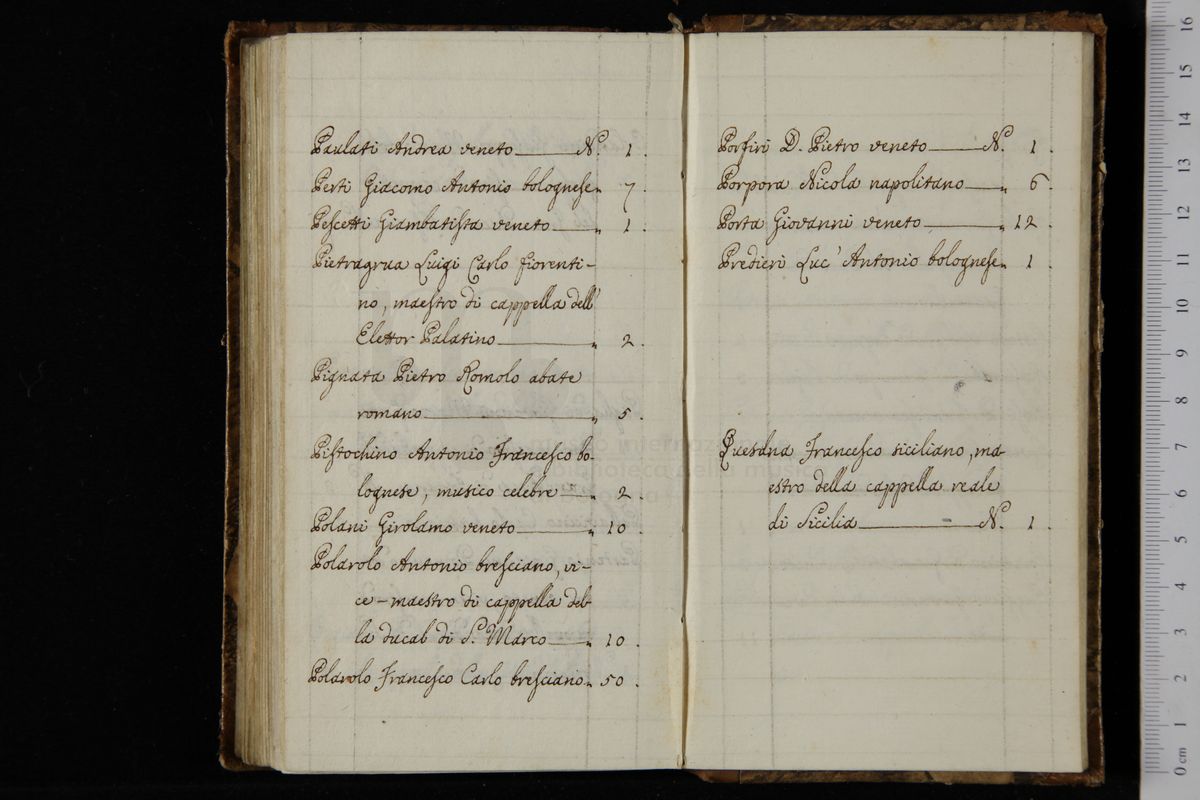 Paulati Andrea veneto N.º 1.
Perti Giacomo Antonio bolognese " 7.
Pescetti Giambatista veneto " 1.
Pietragrua Luigi Carlo fiorenti-
no, maestro di cappella dell'
Elettor Palatino " 2.
Pignata Pietro Romolo abate
romano " 5.
Pistochino Antonio Francesco bo-
lognese, musico celebre " 2.
Polani Girolamo veneto " 10.
Polarolo Antonio bresciano, vi-
ce-maestro di cappella del-
la ducal di S. Marco " 10.
Polarolo Francesco Carlo bresciano " 50.
Porfiri D. Pietro veneto N.º 1.
Porpora Nicola napolitano " 6.
Porta Giovanni veneto " 12.
Predieri Luc' Antonio bolognese " 1.
Quesdna Francesco siciliano, ma-
estro della cappella reale
di Sicilia N.º 1.
museo internazionale
e biblioteca della musica
0 cm 1 2 3 4 5 6 7 8 9 10 11 12 13 14 15 16